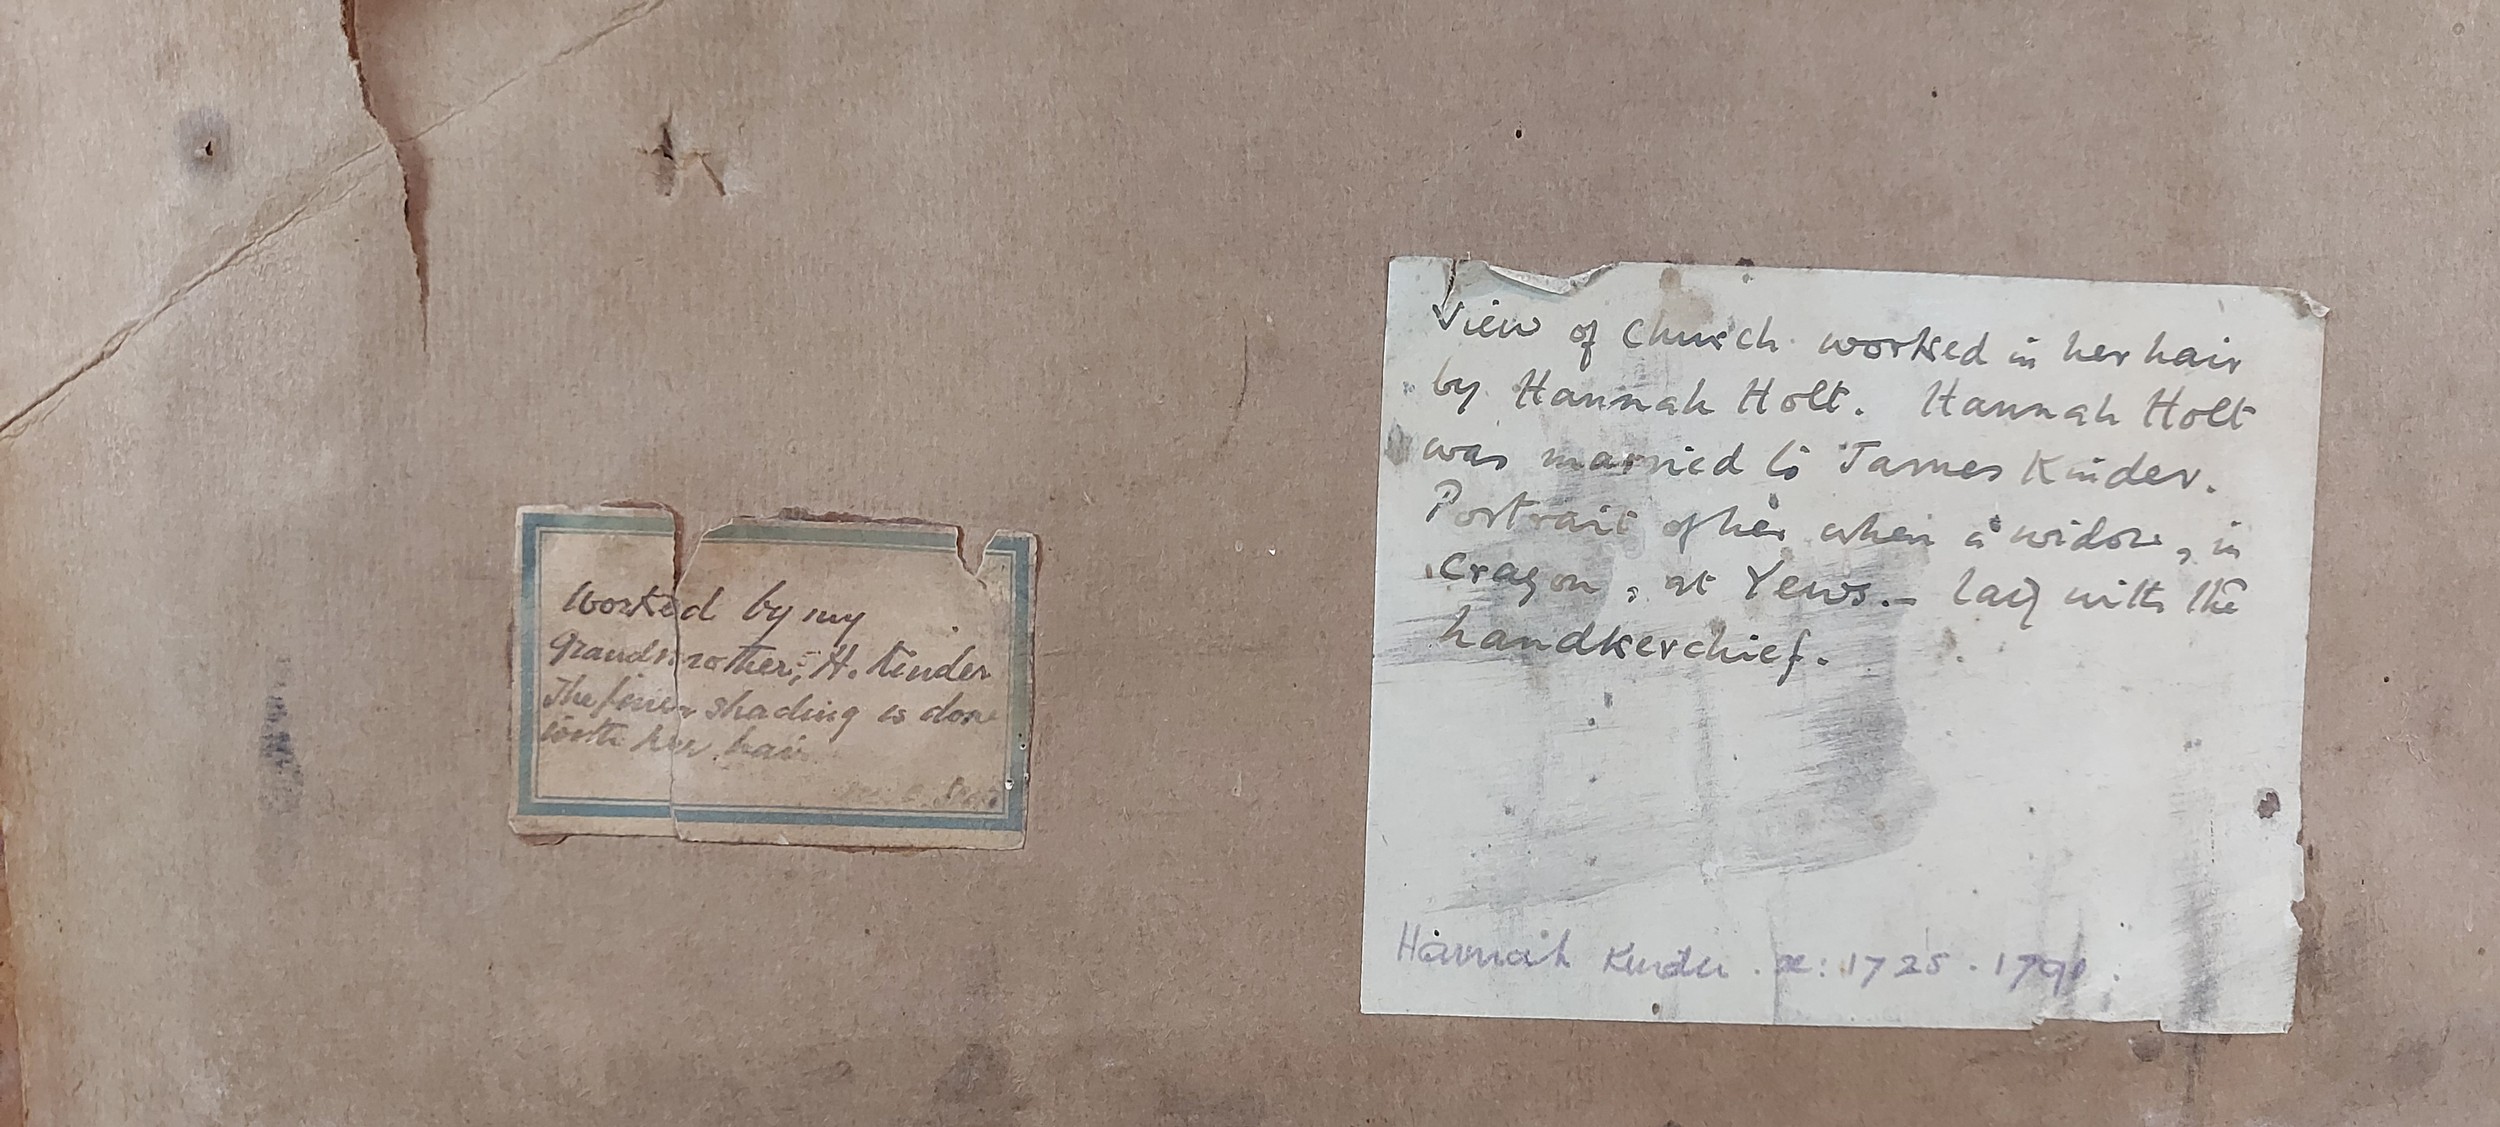 Worked by my
grandmother, H. Kinder
The finer shading is done
with her hair
View of Church worked in her hair
by Hannah Holt. Hannah Holt
was married to James Kinder.
Portrait of her when a widow, in
Crayon, at Yews. – lady with the
handkerchief.
Hannah Kinder. : 1725 .